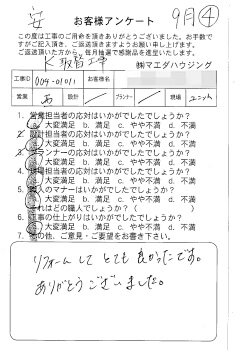 お客様アンケート 9月④
この度は工事のご用命を頂きありがとうございました。お手数で
すがご記入頂き、ご返送頂きますようお願い申し上げます。
ご返送頂いた方から、毎月抽選で感謝品を進呈いたします。
K取替工事 ㈱マエダハウジング
工事ID 004-0101 お客様名
営業 設計 プランナー 現場 ユニット
1. 営業担当者の応対はいかがでしたでしょうか?
a. 大変満足 b. 満足 c. やや不満 d. 不満
2. 設計担当者の応対はいかがでしたでしょうか?
a. 大変満足 b. 満足 c. やや不満 d. 不満
3. 現場担当者の応対はいかがでしたでしょうか?
a. 大変満足 b. 満足 c. やや不満 d. 不満
職人のマナーはいかがでしたでしょうか?
a. 大変満足 b. 満足 c. やや不満 d. 不満
それはどの職人でしょうか?( )
6. 工事の仕上がりはいかがでしたでしょうか?
a. 大変満足 b. 満足 c. やや不満 d. 不満
7. その他、ご意見・ご要望をお書き下さい。
リフォームして とても良かったです。
ありがとうございました。